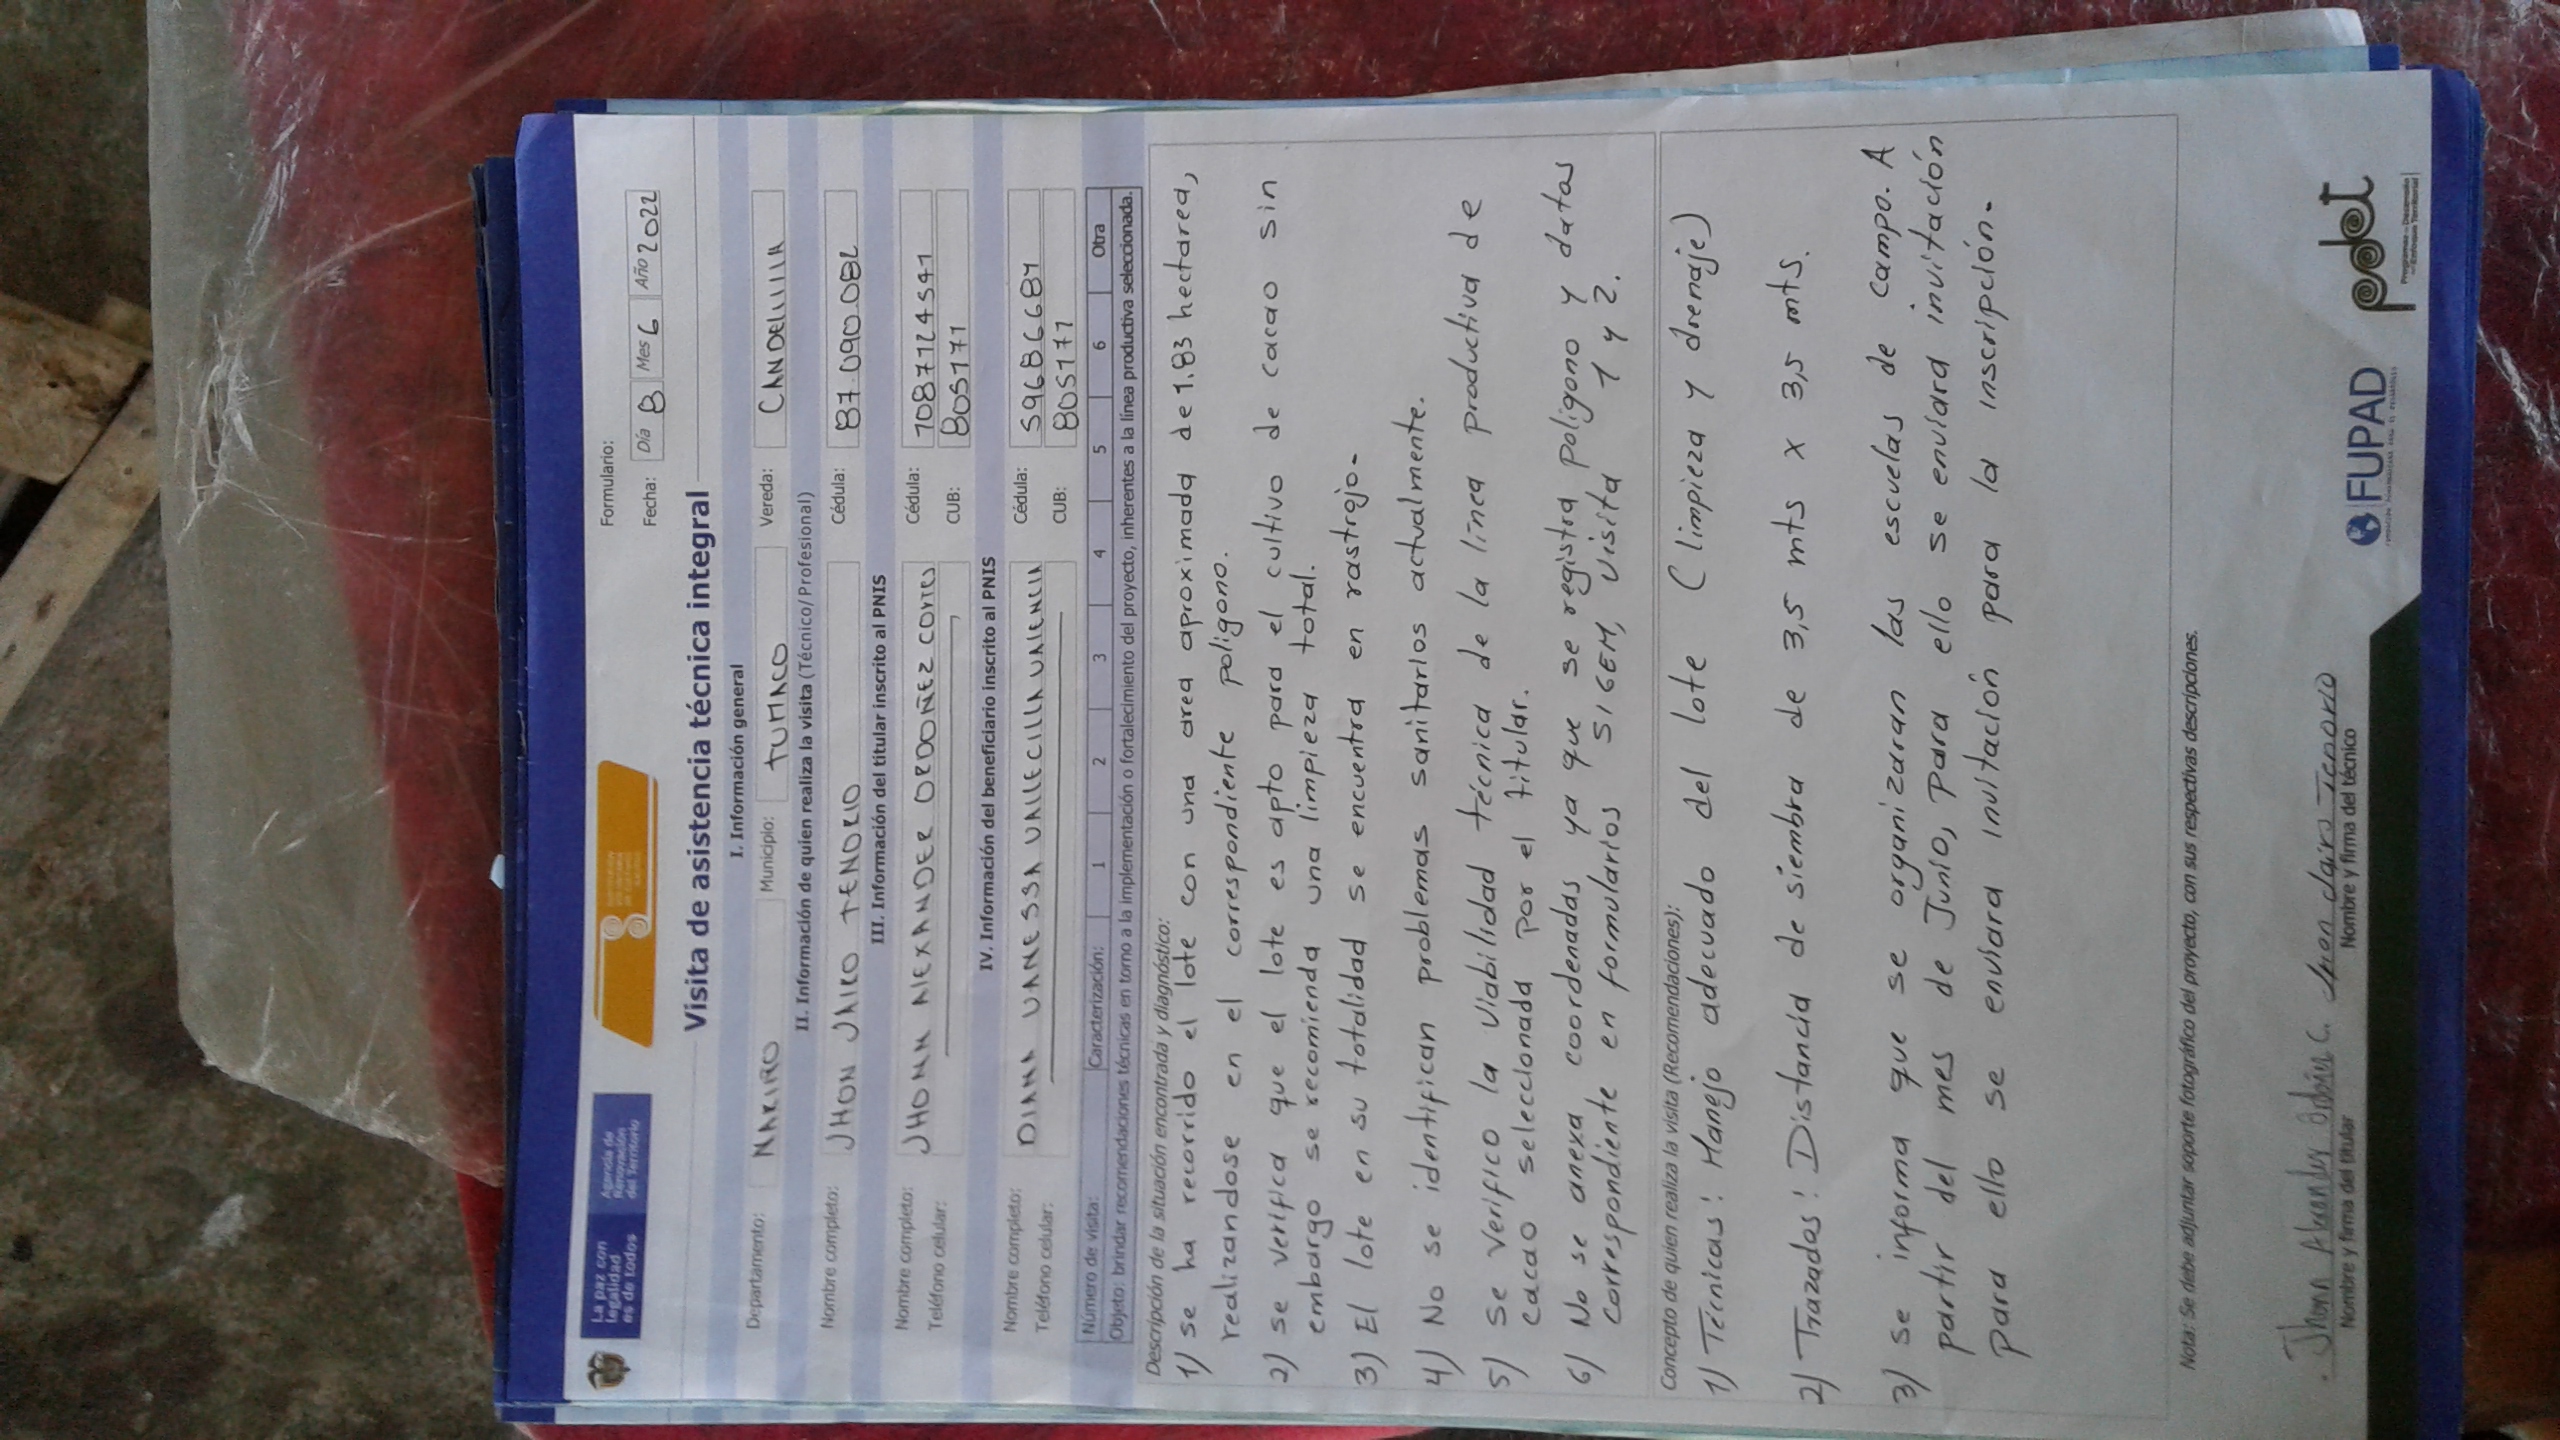 La paz con
legalidad
es de todos
Agencia de
Renovación
del Territorio
Formulario:
Fecha: Día 8 Mes 6 Año 2022
Visita de asistencia técnica integral
I. Información general
Departamento: NARIÑO Municipio: TUMACO Vereda: CANDELILLA
II. Información de quien realiza la visita (Técnico/Profesional)
Nombre completo: JHON JAIRO TENORIO Cédula: 87.090.082
III. Información del titular inscrito al PNIS
Nombre completo: JHONN ALEXANDER ORDOÑEZ CORTES Cédula: 1087124541
Teléfono celular: CUB: 805171
IV. Información del beneficiario inscrito al PNIS
Nombre completo: DIANA VANESSA VALLECILLA VALENCIA Cédula: 59686681
Teléfono celular: CUB: 805171
Número de visita: Caracterización: 1 2 3 4 5 6 Otra
Objeto: brindar recomendaciones técnicas en torno a la implementación o fortalecimiento del proyecto, inherentes a la línea productiva seleccionada.
Descripción de la situación encontrada y diagnóstico:
1) se ha recorrido el lote con una area aproximada de 1.83 hectarea,
realizandose en el correspondiente poligono.
2) se verifica que el lote es apto para el cultivo de cacao sin
embargo se recomienda una limpieza total.
3) El lote en su totalidad se encuentra en rastrojo.
4) No se identifican problemas sanitarios actualmente.
5) se verifico la viabilidad técnica de la línea productiva de
cacao seleccionada por el titular.
6) No se anexa coordenadas ya que se registra poligono y datos
correspondiente en formularios SIGEM, visita 1 y 2.
Concepto de quien realiza la visita (Recomendaciones):
1) Técnicas: Manejo adecuado del lote (limpieza y drenaje)
2) Trazados: Distancia de siembra de 3,5 mts x 3,5 mts.
3) se informa que se organizaran las escuelas de campo. A
partir del mes de Junio, para ello se enviara invitación
para ello se enviara invitación para la inscripción.
Nota: Se debe adjuntar soporte fotográfico del proyecto, con sus respectivas descripciones.
Jhon Jairo Tenorio
Nombre y firma del titular
Nombre y firma del técnico
FUPAD
pdet
Programas de Desarrollo
con Enfoque Territorial